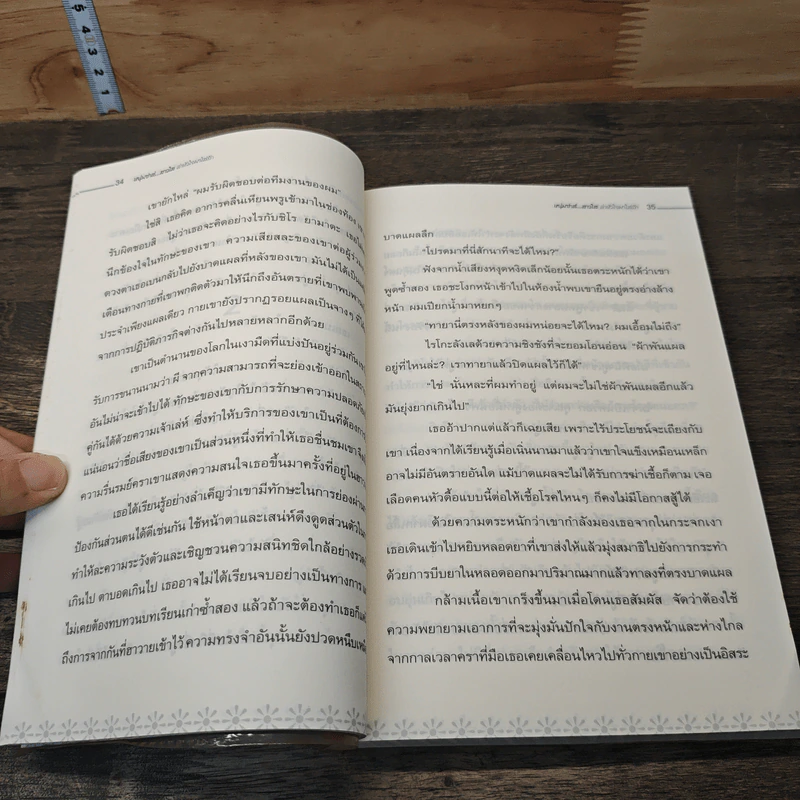 5 4 3 2 1
34
เขายักไหล่ "ผมรับผิดชอบต่อทีมงานของผม"
ใช่สิ เธอคิด อาการคลื่นเหียนพรูเข้ามาในช่องท้อง
รับผิดชอบสิ ไม่ว่าเธอจะคิดอย่างไรกับชิโร ยามาดะ
นึกข้องใจในทักษะของเขา ความเสียสละของเขาต่อผู้ร่วม
ดวงตาเธอเบนกลับไปยังบาดแผลที่หลังของเขา มันไม่ได้เป็น
เตือนทางกายที่เขาพกติดตัวมาให้นึกถึงอันตรายที่เขาพบ
ประจำเพียงแผลเดียว กายเขายังปรากฏรอยแผลเป็นจางๆ
จากการปฏิบัติภารกิจต่างกันไปหลายหลากอีกด้วย
เขาเป็นตำนานของโลกในเงามืดที่แบ่งปันอยู่ร่วมกัน
รับการขนานนามว่า ผี จากความสามารถที่จะย่องเข้าออกใน
อันไม่น่าจะเข้าไปได้ ทักษะของเขากับการรักษาความปลอด
คู่กันได้ด้วยความเจ้าเล่ห์ ซึ่งทำให้บริการของเขาเป็นที่ต้อง
แน่นอนว่าชื่อเสียงของเขาเป็นส่วนหนึ่งที่ทำให้เธอชื่นชมเขา
ความรื่นรมย์คราเขาแสดงความสนใจเธอขึ้นมาครั้งที่อยู่ใน
เธอได้เรียนรู้อย่างลำเค็ญว่าเขามีทักษะในการย่องผ่าน
ป้องกันส่วนตนได้ดีเช่นกัน ใช้หน้าตาและเสน่ห์ดึงดูดส่วนตัว
ทำให้ละความระวังตัวและเชิญชวนความสนิทชิดใกล้อย่าง
เกินไป ตาบอดเกินไป เธออาจไม่ได้เรียนจบอย่างเป็นทางการ
ไม่เคยต้องทบทวนบทเรียนเก่าซ้ำสอง แล้วถ้าจะต้องทำเธอก็
ถึงการจากกันที่ฮาวายเข้าไว้ ความทรงจำอันนั้นยังปวดหนึบ
35
บาดแผลลึก
"โปรดมาที่นี่สักนาทีจะได้ไหม?"
ฟังจากน้ำเสียงหงุดหงิดเล็กน้อยนั้นเธอตระหนักได้ว่าเขา
พูดซ้ำสอง เธอชะโงกหน้าเข้าไปในห้องน้ำพบเขายืนอยู่ตรงอ่างล้าง
หน้า ผมเปียกน้ำมาหยกๆ
"ทายานี่ตรงหลังของผมหน่อยจะได้ไหม? ผมเอื้อมไม่ถึง"
ไรโกะลังเลด้วยความชิงชังที่จะยอมโอนอ่อน "ผ้าพันแผล
อยู่ที่ไหนล่ะ? เราทายาแล้วปิดแผลไว้ก็ได้"
"ใช่ นั่นหละที่ผมทำอยู่ แต่ผมจะไม่ใช้ผ้าพันแผลอีกแล้ว
มันยุ่งยากเกินไป"
เธออ้าปากแต่แล้วก็เฉยเสีย เพราะไร้ประโยชน์จะเถียงกับ
เขา เนื่องจากได้เรียนรู้เมื่อเนิ่นนานมาแล้วว่าเขาใจแข็งเหมือนเหล็ก
อาจไม่มีอันตรายอันใด แม้บาดแผลจะไม่ได้รับการฆ่าเชื้อก็ตาม เจอ
เลือดคนหัวดื้อแบบนี้ต่อให้เชื้อโรคไหนๆ ก็คงไม่มีโอกาสสู้ได้
ด้วยความตระหนักว่าเขากำลังมองเธอจากในกระจกเงา
เธอเดินเข้าไปหยิบหลอดยาที่เขาส่งให้แล้วมุ่งสมาธิไปยังการกระทำ
ด้วยการบีบยาในหลอดออกมาปริมาณมากแล้วทาลงที่ตรงบาดแผล
กล้ามเนื้อเขาเกร็งขึ้นมาเมื่อโดนเธอสัมผัส จัดว่าต้องใช้
ความพยายามเอาการที่จะมุ่งมั่นปักใจกับงานตรงหน้าและห่างไกล
จากกาลเวลาคราที่มือเธอเคยเคลื่อนไหวไปทั่วกายเขาอย่างเป็นอิสระ